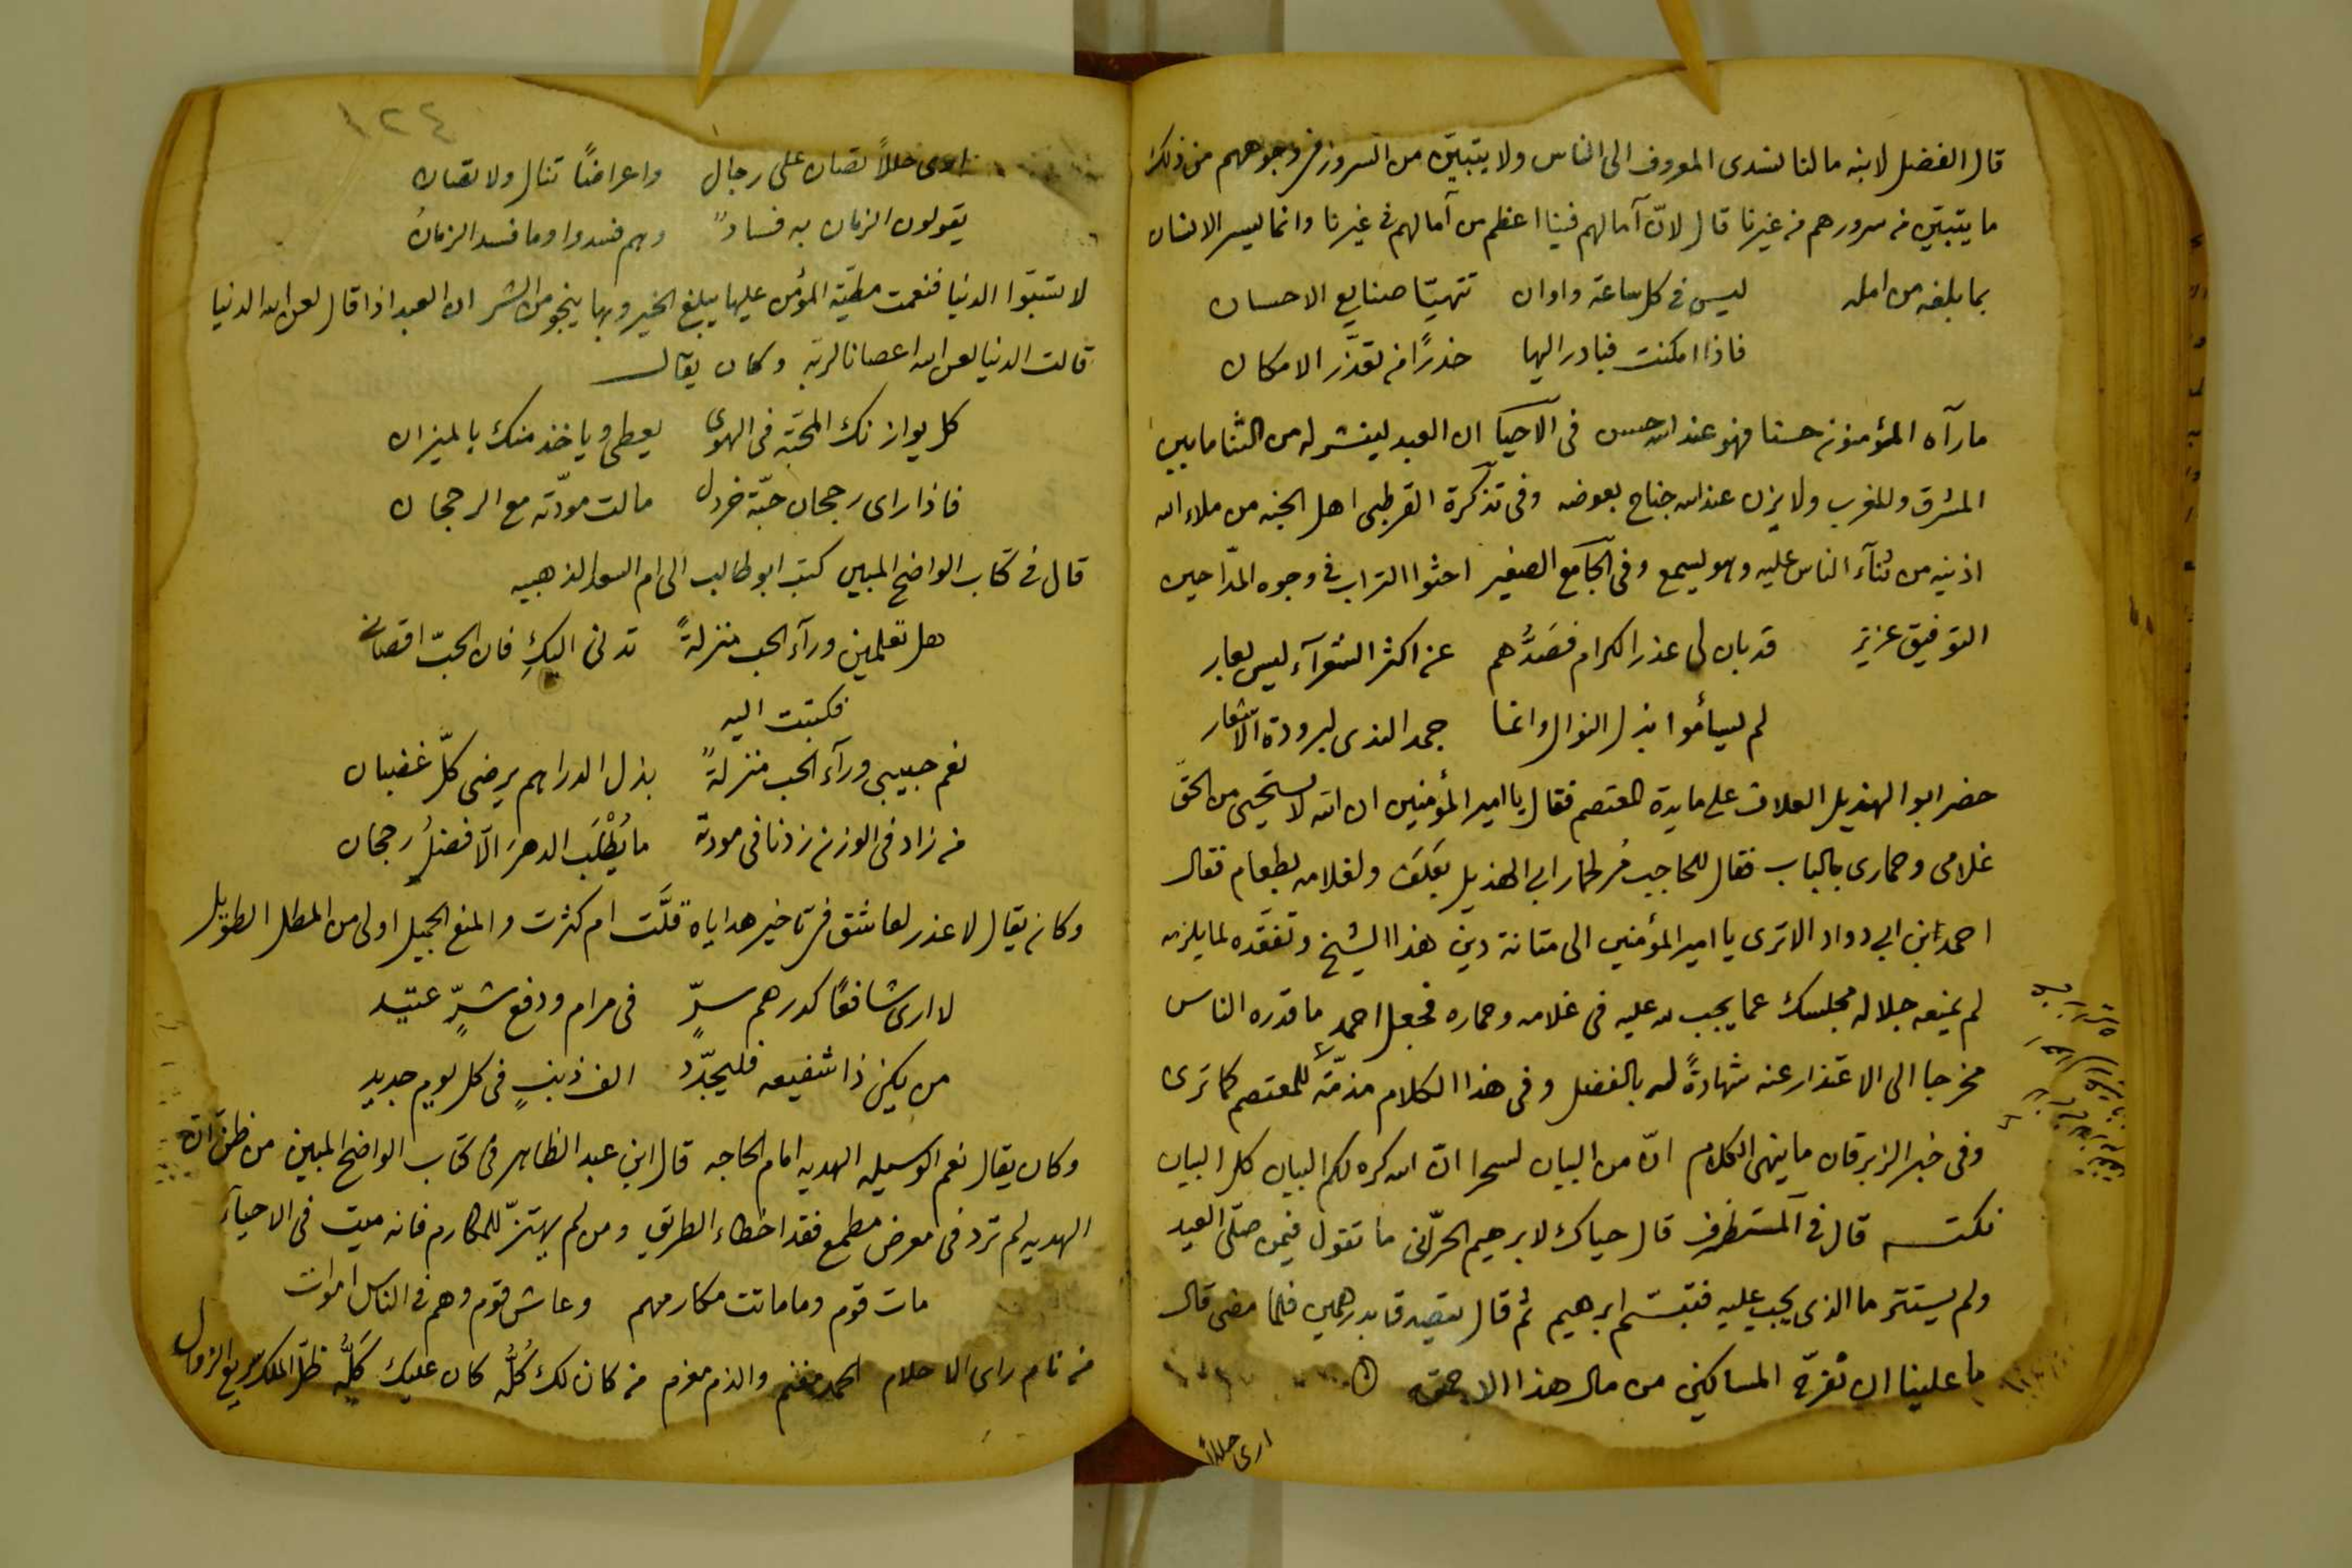 قال الفضل لابنه مالنا نسدى المعروف الى الناس ولا يتبيّن من السرور فى وجوههم من ذلك
ما يتبيّن من سرورهم من غيرنا قال لانّ آمالهم فينا اعظم من آمالهم فى غيرنا وانما يسر الانسان
بما بلغه من امله ليس فى كل ساعة واوان تتهيّا صنايع الاحسان
فاذا امكنت فبادر اليها حذرًا من تعذّر الامكان
ما رآه المؤمنون حسنا فهو عند الله حسن فى الاحيا ان العبد لينشر له من الثنا ما بين
المشرق والمغرب ولا يزن عند الله جناح بعوضه وفى تذكرة القرطبى اهل الجنه من ملاء الله
اذنيه من ثنآء الناس عليه وهو يسمع وفى الجامع الصغير احثوا التراب فى وجوه المدّاحين
التوفيق عزيز قد بان لى عذر الكرام فصَدُّهم عن اكثر الشعرآء ليس بعار
لم يسأموا بذل النوال وانما جمد الندى لبرودة الاشعار
حضر ابو الهذيل العلاف على مايدة المعتصم فقال يا امير المؤمنين ان الله لا يستحيى من الحقّ
غلامى وحمارى بالباب فقال للحاجب مُر لحمار ابى الهذيل بعَلَف ولغلامه بطعام فقال
احمد ابن ابى دواد الا ترى يا امير المؤمنين الى متانة دين هذا الشيخ وتفقّده لما يلزمه
لم يمنعه جلاله مجلسك عما يجب لله عليه فى غلامه وحماره فجعل احمد ما قدره الناس
مخرجا الى الاعتذار عنه شهادةً له بالفضل وفى هذا الكلام مذمّة للمعتصم كما ترى
وفى خبر الزبرقان ما ينهى الكلام انّ من البيان لسحرا انّ الله كره لكم البيان كل البيان
نكتـــه قال فى المستظرف قال حياك لابرهيم الحرّنى ما تقول فيمن صلّى العيد
ولم يستتر ما الذى يجب عليه فتبسّم ابرهيم ثم قال يتصدق بدرهمين فلما مضى قال
ما علينا ان نفرّح المساكين من مال هذا الاحمق
ارى حللاً
١٢٤
ارى حللاً تصان على رجال واعراضًا تنال ولا تصان
يقولون الزمان به فسادٌ وهم فسدوا وما فسد الزمانُ
لا تسبّوا الدنيا فنعمت مطيّة المؤمن عليها يبلغ الخير وبها ينجو من الشر ان العبد اذا قال لعن الله الدنيا
قالت الدنيا لعن الله اعصانا لربّه وكان يقال
كل يوازنك المحبّة فى الهوى يعطى وياخذ منك بالميزان
فاذا راى رجحان حبّة خردل مالت مودّته مع الرجحان
قال فى كتاب الواضح المبين كتب ابو طالب الى ام السعد الذهبيه
هل تعلمين ورآء الحب منزلةً تدنى اليكِ فان الحبّ اقصانى
فكتبت اليه
نعم حبيبى ورآء الحب منزلةً بذل الدراهم يرضى كلّ غضبان
من زاد فى الوزن زدنا فى مودته ما يُطْلَب الدهرَ الّا فضلُ رجحان
وكان يقال لا عذر لعاشق فى تاخير هداياه قلّت ام كثرت والمنع الجميل اولى من المطل الطويل
لا ارى شافعًا كدرهم سرّ فى مرام ودفع شرٍّ عتيد
من يكن ذا شفيعه فليجدّد الف ذنبٍ فى كل يوم جديد
وكان يقال نعم الوسيله الهديه امام الحاجه قال ابن عبد الظاهر فى كتاب الواضح المبين من ظن انّ
الهديه لم ترد فى معرض مطمع فقد اخطاء الطريق ومن لم يهتزّ للمكارم فانه ميت فى الاحيآء
مات قوم وما ماتت مكارمهم وعاش قوم وهم فى الناس اموات
من نام راى الاحلام الحمد مغنم والذم مغرم من كان لك كُلُّه كان عليك كَلُّه ظلّ الملك سريع الزوال